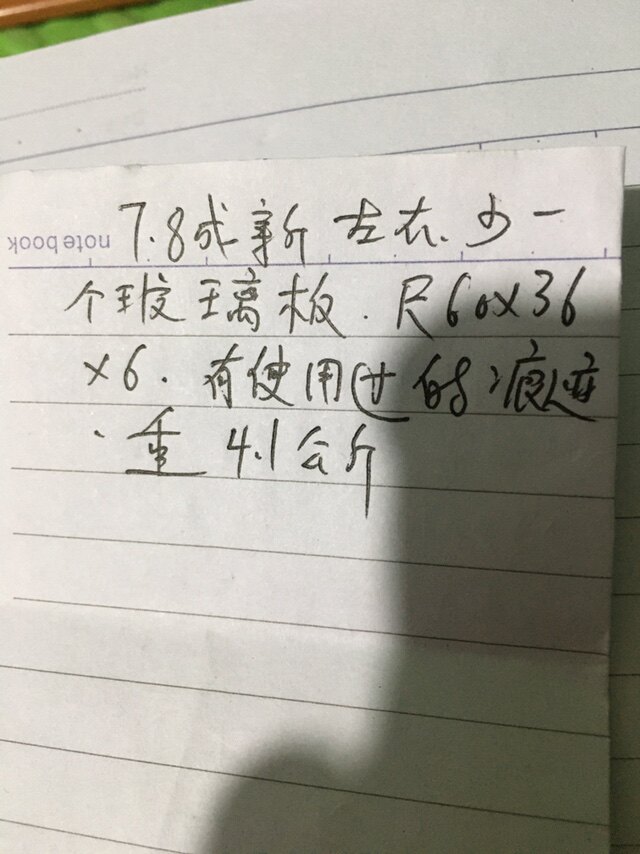 notebook
7.8成新左右.少一
个玻璃板.尺60x36
x6.有使用过的痕迹
.重4.1公斤